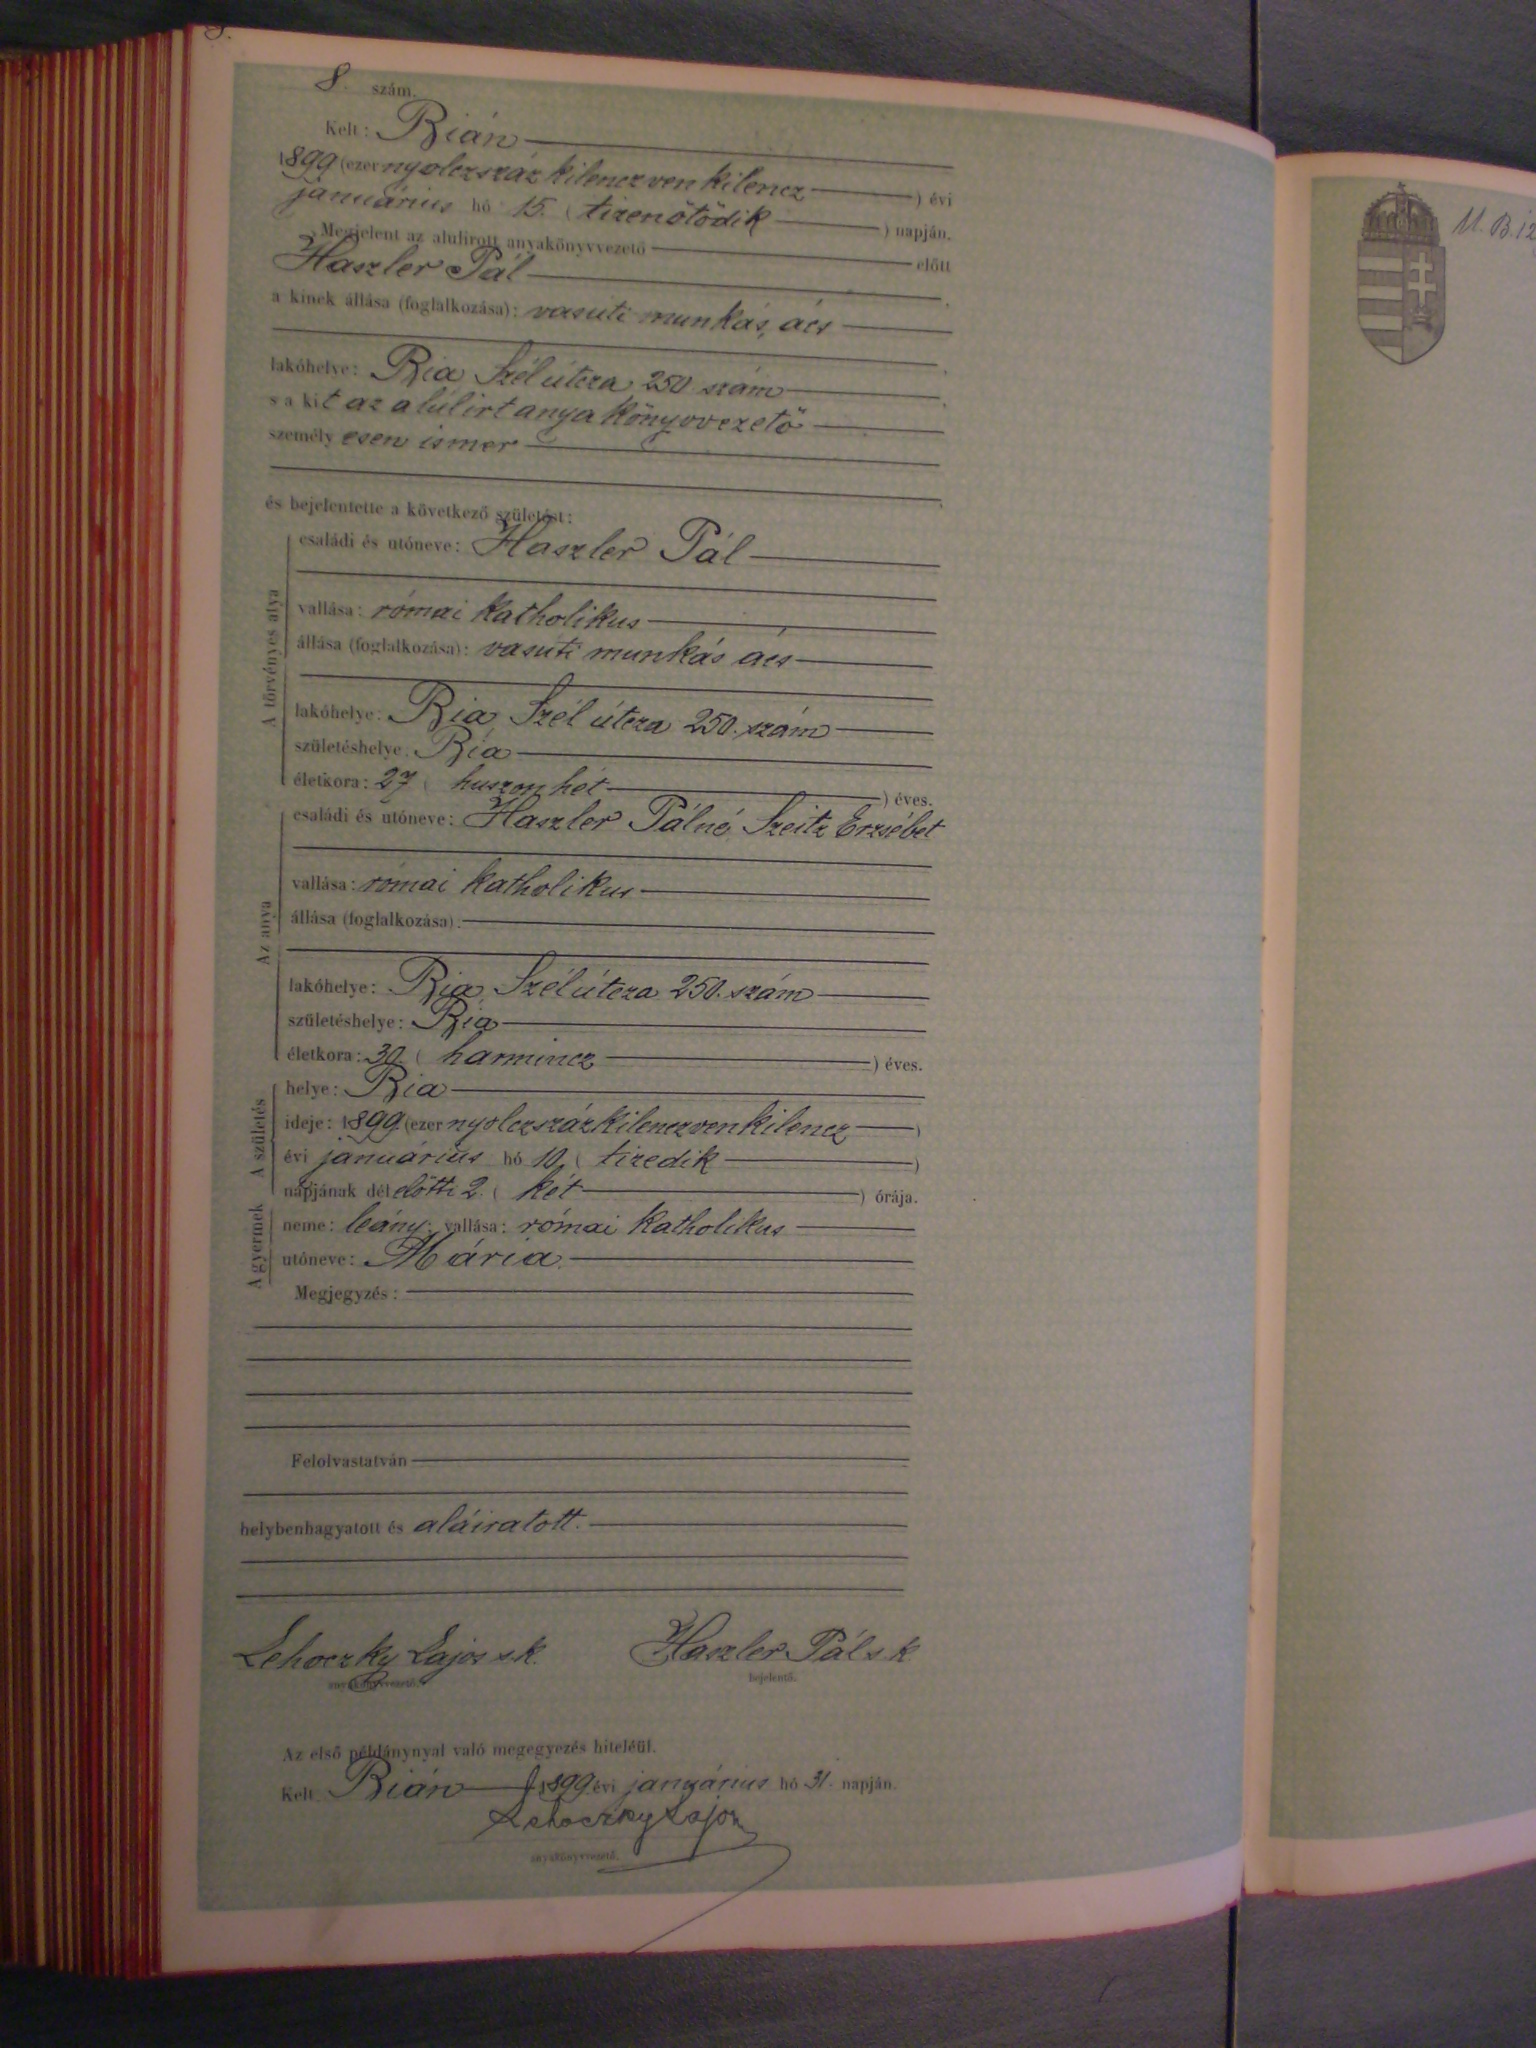 8. szám.
Kelt: Bián
1899 (ezer nyolczszáz kilenczven kilencz ) évi
január​ius hó 15. ( tizenötödik ) napján.
Megjelent az alulirott anyakönyvvezető előtt
Haszler Pál
a kinek állása (foglalkozása): vasuti munkás, ács
lakóhelye: Bia Szél útcza 250. szám
s a kit az alúlirt anyakönyvvezető
személyesen ismer
és bejelentette a következő születést:
A törvényes atya
családi és utóneve: Haszler Pál
vallása: római katholikus
állása (foglalkozása): vasuti munkás ács
lakóhelye: Bia, Szél útcza 250. szám
születéshelye: Bia
életkora: 27 ( huszonhét ) éves.
Az anya
családi és utóneve: Haszler Pálné, Szeitz Erzsébet
vallása: római katholikus
állása (foglalkozása):
lakóhelye: Bia, Szél útcza 250. szám
születéshelye: Bia
életkora: 30. ( harmincz ) éves.
A születés
helye: Bia
ideje: 1899 (ezer nyolczszázkilenczvenkilencz )
évi január​ius hó 10. ( tizedik )
napjának délelőtti 2. ( két ) órája.
A gyermek
neme: leány; vallása: római katholikus
utóneve: Mária.
Megjegyzés:
Felolvastatván
helybenhagyatott és aláiratott.
Lehoczky Lajos s.k. Haszler Pál s k
anyakönyvvezető. bejelentő.
Az első példánynyal való megegyezés hiteléül.
Kelt Bián 1899 évi január​ius hó 31. napján.
Lehoczky Lajos
anyakönyvvezető.